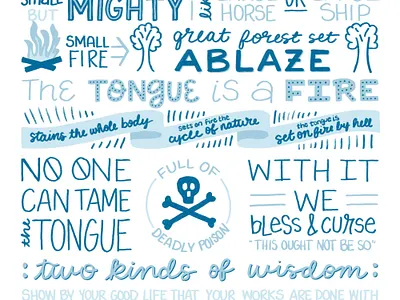 SMALL
BUT
MIGHTY
HORSE
OR
SHIP
SMALL
FIRE
great forest set
ABLAZE
THE TONGUE IS A FIRE
stains the whole body
sets on fire the
cycle of nature
the tongue is
set on fire by hell
NO ONE
CAN TAME
the TONGUE
FULL OF
DEADLY POISON
WITH IT
WE
bless & curse
"THIS OUGHT NOT BE SO"
: two kinds of wisdom :
SHOW BY YOUR GOOD LIFE THAT YOUR WORKS ARE DONE WITH